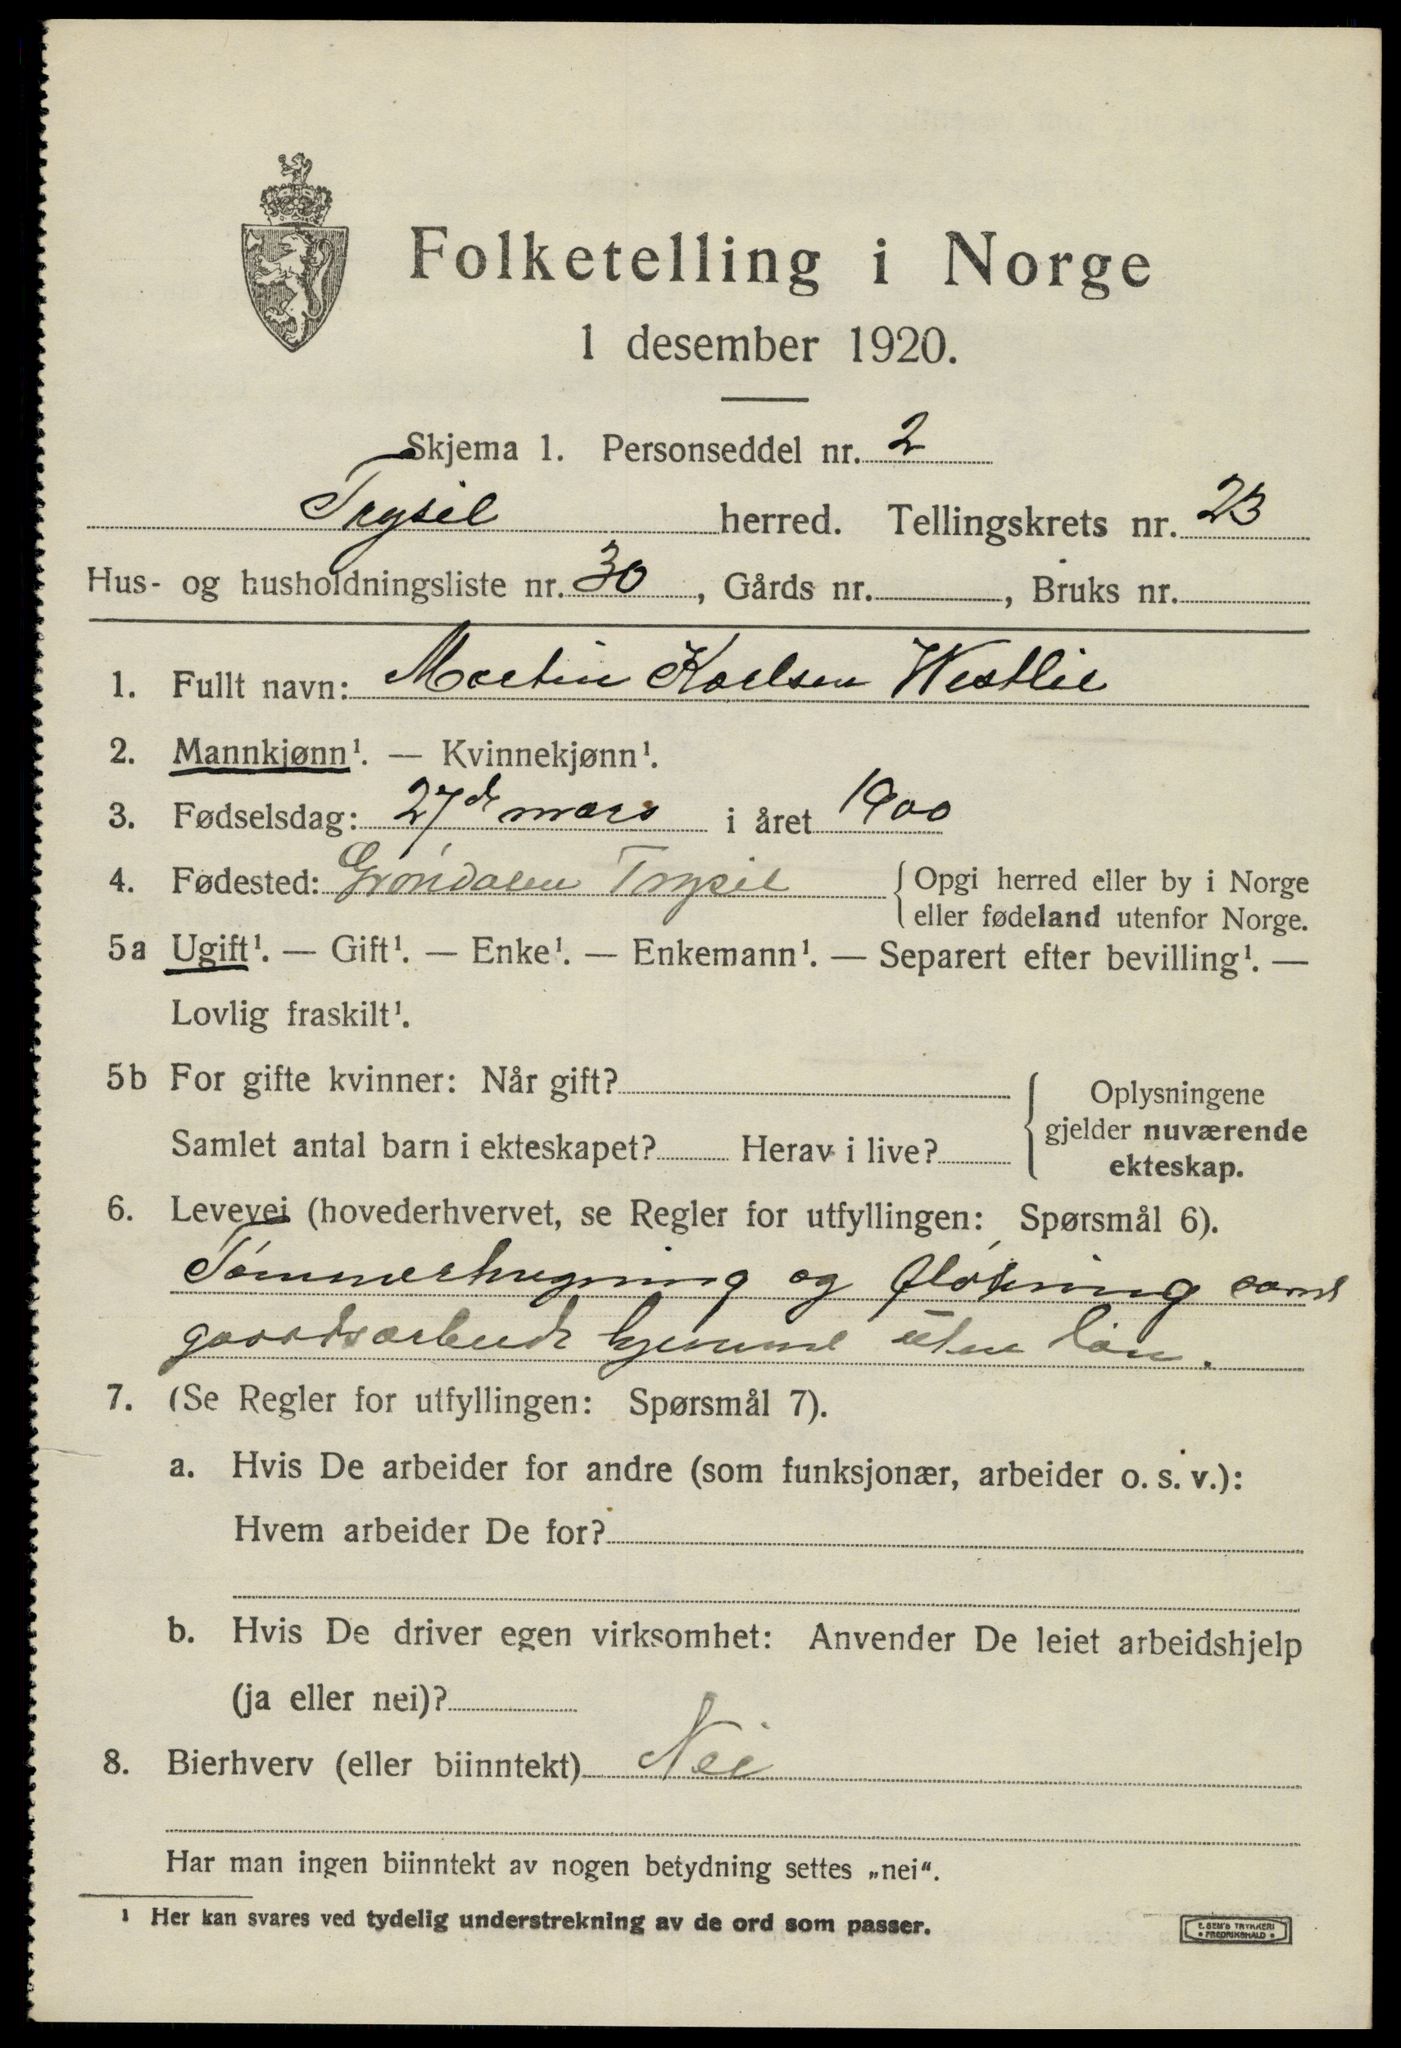 Folketelling i Norge
1 desember 1920.
Skjema 1. Personseddel nr. 2
Trysil herred. Tellingskrets nr. 23
Hus- og husholdningsliste nr. 30, Gårds nr. , Bruks nr.
1. Fullt navn: Martin Karlsen Westlie
2. Mannkjønn¹. — Kvinnekjønn¹.
3. Fødselsdag: 27de mars i året 1900
4. Fødested: Grøndalen Trysil { Opgi herred eller by i Norge
eller fødeland utenfor Norge.
5a Ugift¹. — Gift¹. — Enke¹. — Enkemann¹. — Separert efter bevilling¹. —
Lovlig fraskilt¹.
5b For gifte kvinner: Når gift?
Samlet antal barn i ekteskapet? Herav i live?
Oplysningene
gjelder nuværende
ekteskap.
6. Levevei (hovederhvervet, se Regler for utfyllingen: Spørsmål 6).
Tømmerhugning og fløtning samt
gaardsarbeide hjemme uten løn.
7. (Se Regler for utfyllingen: Spørsmål 7).
a. Hvis De arbeider for andre (som funksjonær, arbeider o. s. v.):
Hvem arbeider De for?
b. Hvis De driver egen virksomhet: Anvender De leiet arbeidshjelp
(ja eller nei)?
8. Bierhverv (eller biinntekt) Nei
Har man ingen biinntekt av nogen betydning settes „nei“.
¹ Her kan svares ved tydelig understrekning av de ord som passer.
E. SEM'S TRYKKERI
FREDRIKSHALD